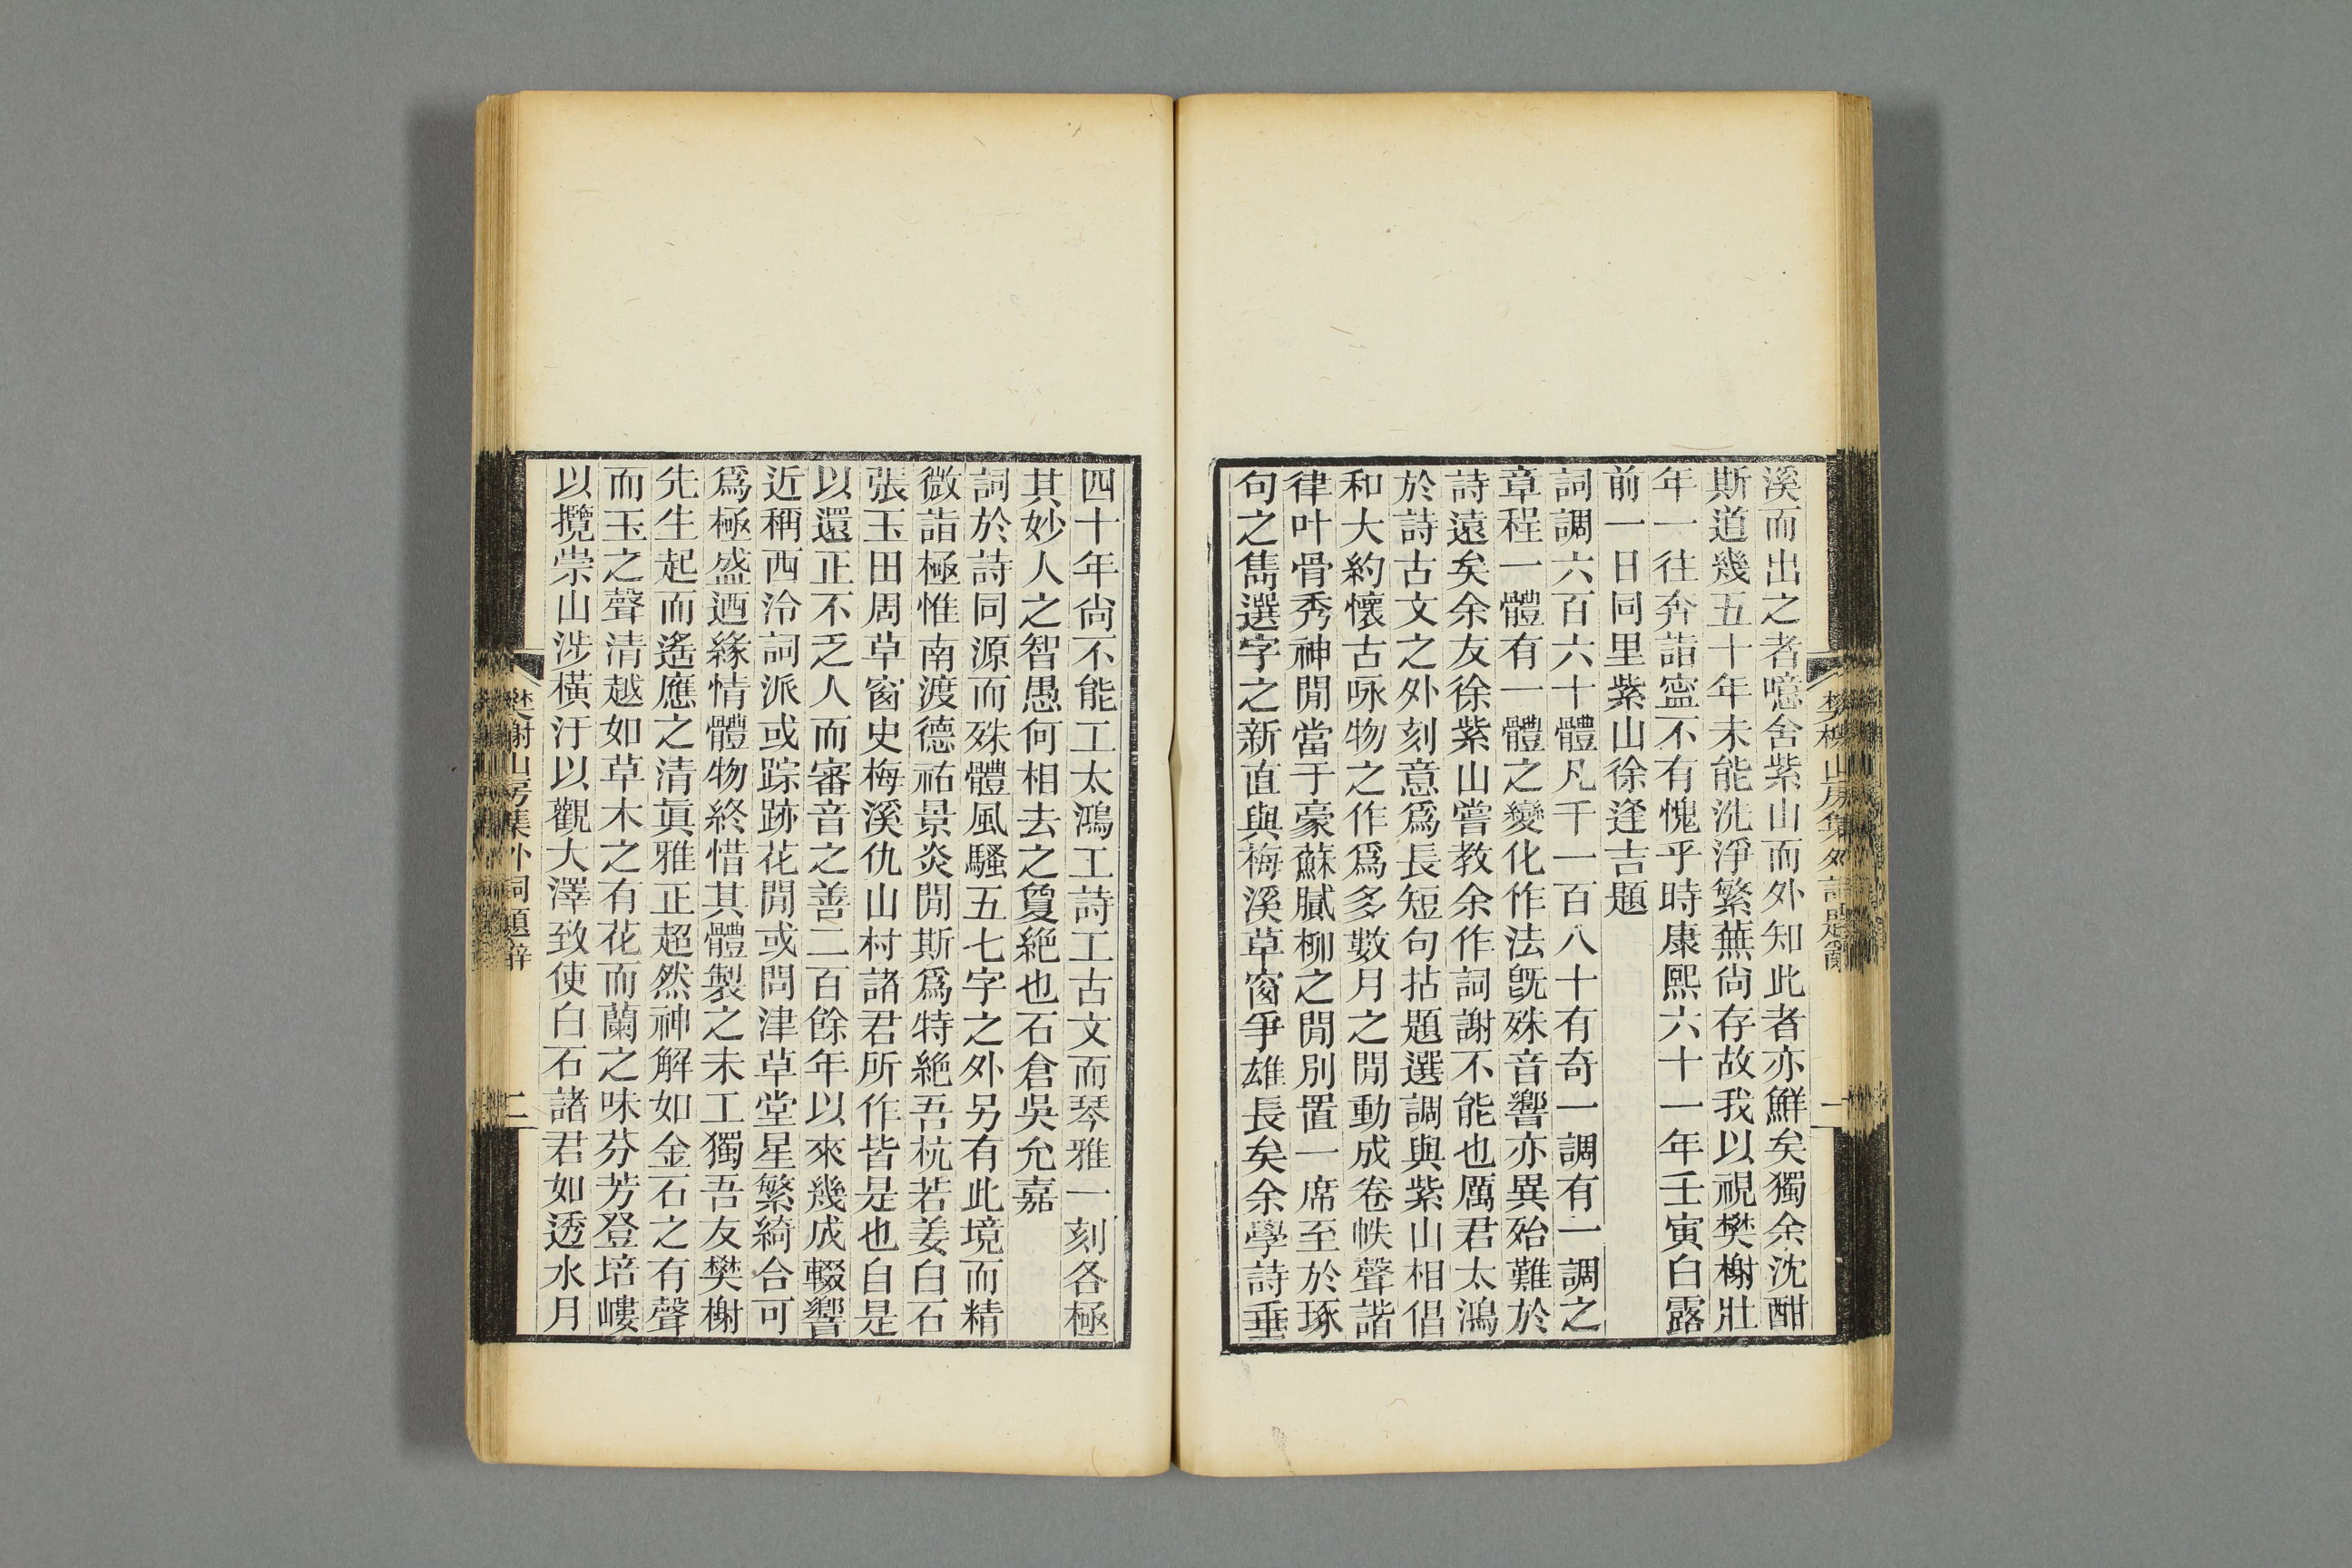 溪而出之者噫舍紫山而外知此者亦鮮矣獨余沈酣
斯道幾五十年未能洗淨繁蕪尙存故我以視樊榭壯
年一往奔詣寍不有愧乎時康熙六十一年壬寅白露
前一日同里紫山徐逢吉題
詞調六百六十體凡千一百八十有奇一調有一調之
章程一體有一體之變化作法旣殊音響亦異殆難於
詩遠矣余友徐紫山嘗教余作詞謝不能也厲君太鴻
於詩古文之外刻意爲長短句拈題選調與紫山相倡
和大約懷古咏物之作爲多數月之閒動成卷帙聲諧
律叶骨秀神閒當于豪蘇膩柳之閒別置一席至於琢
句之雋選字之新直與梅溪草窗爭雄長矣余學詩垂
樊榭山房集外詞題辭
二
四十年尙不能工太鴻工詩工古文而琴雅一刻各極
其妙人之智愚何相去之敻絕也石倉吳允嘉
詞於詩同源而殊體風騷五七字之外另有此境而精
微詣極惟南渡德祐景炎閒斯爲特絕吾杭若姜白石
張玉田周草窗史梅溪仇山村諸君所作皆是也自是
以還正不乏人而審音之善二百餘年以來幾成輟響
近稱西泠詞派或踪跡花閒或問津草堂星繁綺合可
爲極盛迺緣情體物終惜其體製之未工獨吾友樊榭
先生起而遙應之清眞雅正超然神解如金石之有聲
而玉之聲清越如草木之有花而蘭之味芬芳登培嶁
以攬崇山涉橫汙以觀大澤致使白石諸君如透水月
樊榭山房集外詞題辭
二